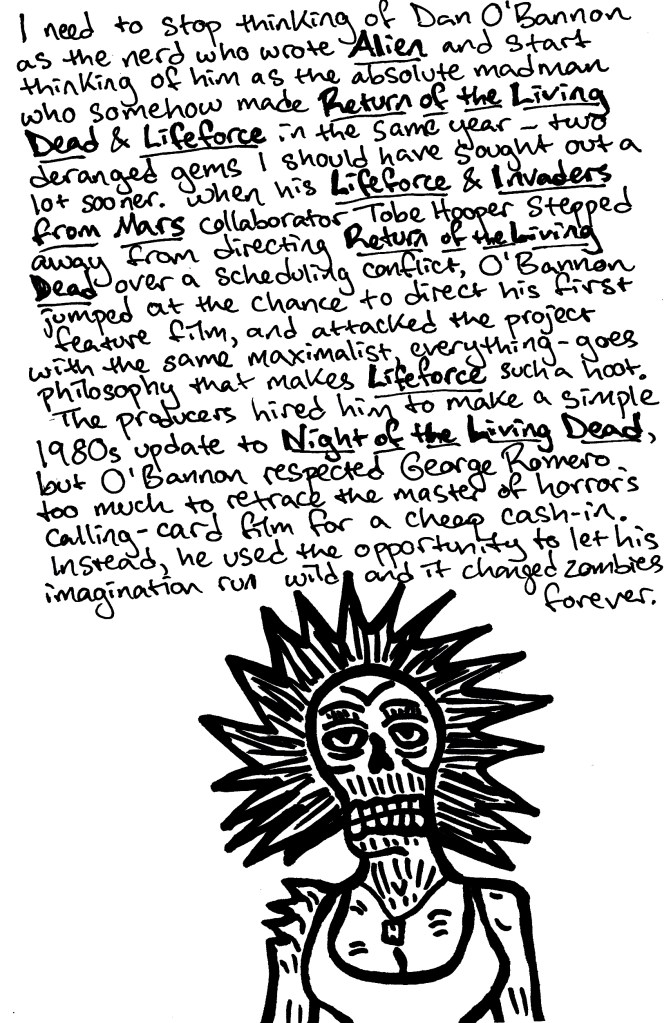 I need to stop thinking of Dan O'Bannon
as the nerd who wrote Alien and start
thinking of him as the absolute madman
who somehow made Return of the Living
Dead & Lifeforce in the same year – two
deranged gems I should have sought out a
lot sooner. When his Lifeforce & Invaders
from Mars collaborator Tobe Hooper stepped
away from directing Return of the Living
Dead over a scheduling conflict, O'Bannon
jumped at the chance to direct his first
feature film, and attacked the project
with the same maximalist, everything-goes
philosophy that makes Lifeforce such a hoot.
The producers hired him to make a simple
1980s update to Night of the Living Dead,
but O'Bannon respected George Romero
too much to retrace the master of horror's
calling-card film for a cheap cash-in.
Instead, he used the opportunity to let his
imagination run wild, and it changed zombies
forever.